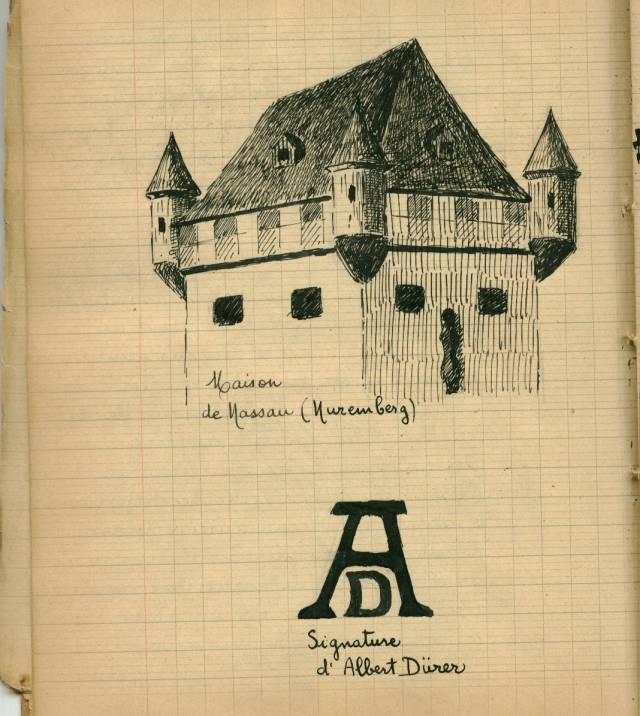 Maison
de Nassau (Nuremberg)
AD
Signature
d' Albert Dürer